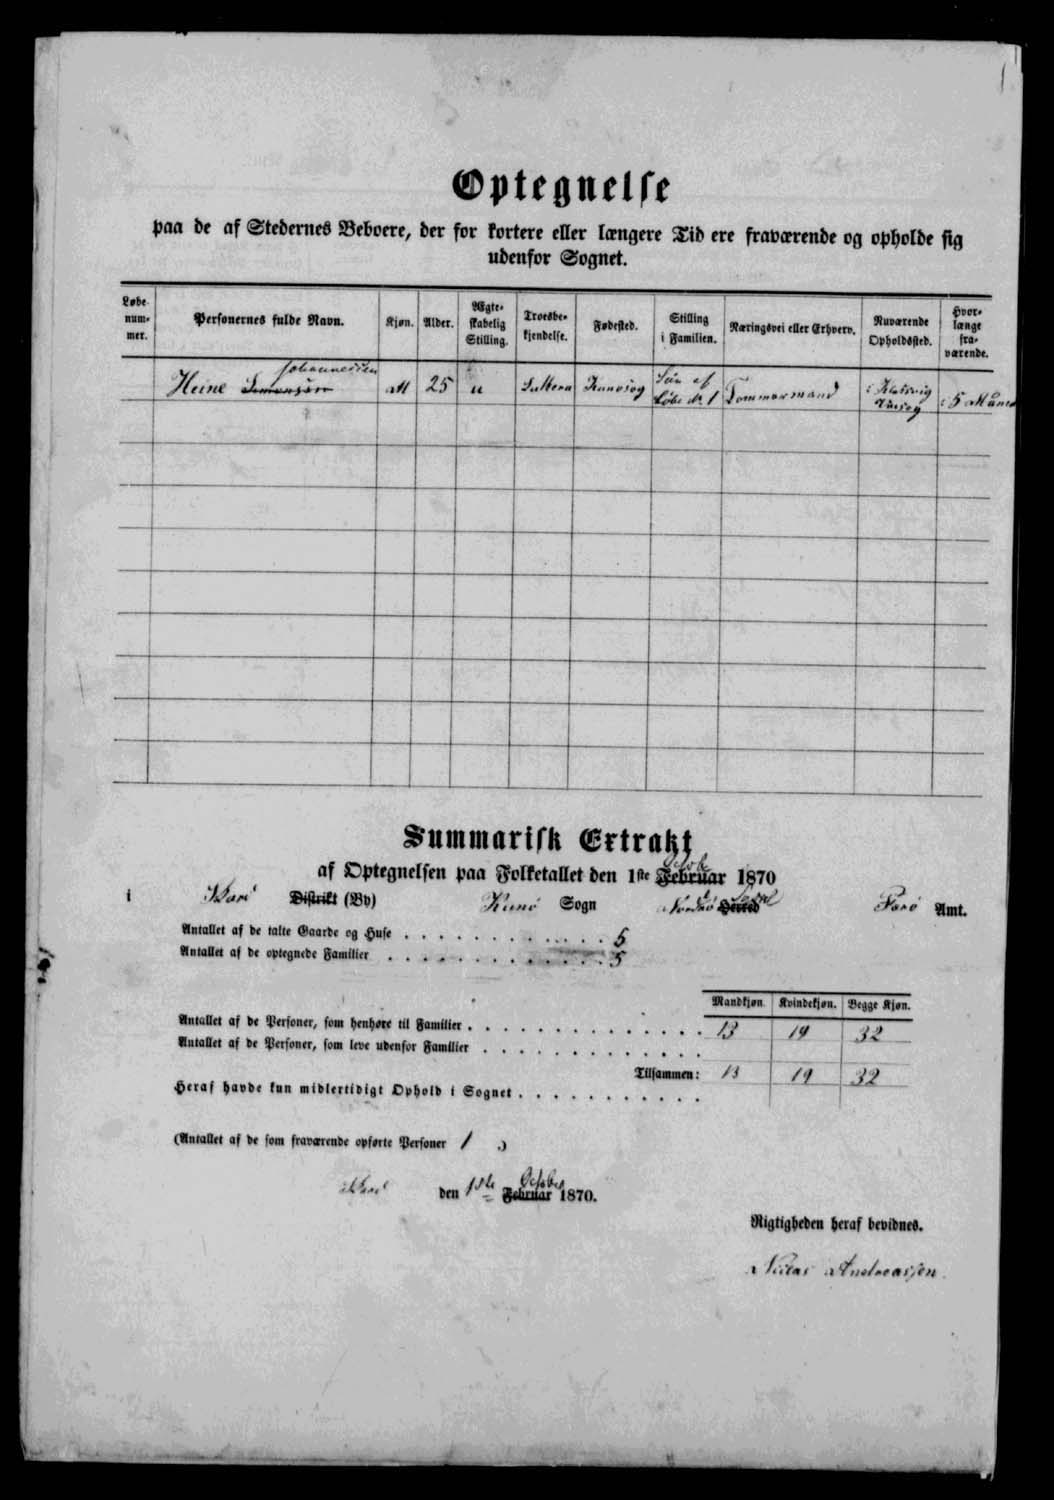 Optegnelse
paa de af Stedernes Beboere, der for kortere eller længere Tid ere fraværende og opholde sig
udenfor Sognet.
Løbe-
num-
mer.
Personernes fulde Navn.
Kjøn.
Alder.
Ægte-
skabelig
Stilling.
Troesbe-
kjendelse.
Fødested.
Stilling
i Familien.
Næringsvei eller Erhverv.
Nuværende
Opholdssted.
Hvor-
længe
fra-
værende.
Johannessen
Heine Simonsen M 25 u Luthera Kunosog Søn af Tømmermand i Klaksvig i 5 Maaned
Løbe No 1
Summarisk Extrakt
Octob
af Optegnelsen paa Folketallet den 1ste Februar 1870
i Distrikt (By) Kunø Sogn Nordrø Herred Færø Amt.
Antallet af de talte Gaarde og Huse 5
Antallet af de optegnede Familier 5
Mandkjøn. Kvindekjøn. Begge Kjøn.
Antallet af de Personer, som henhøre til Familier 13 19 32
Antallet af de Personer, som leve udenfor Familier
Tilsammen: 13 19 32
Heraf havde kun midlertidigt Ophold i Sognet
(Antallet af de som fraværende opførte Personer 1 )
October
den 1ste Februar 1870.
Rigtigheden heraf bevidnes.
Niclas Andreassen